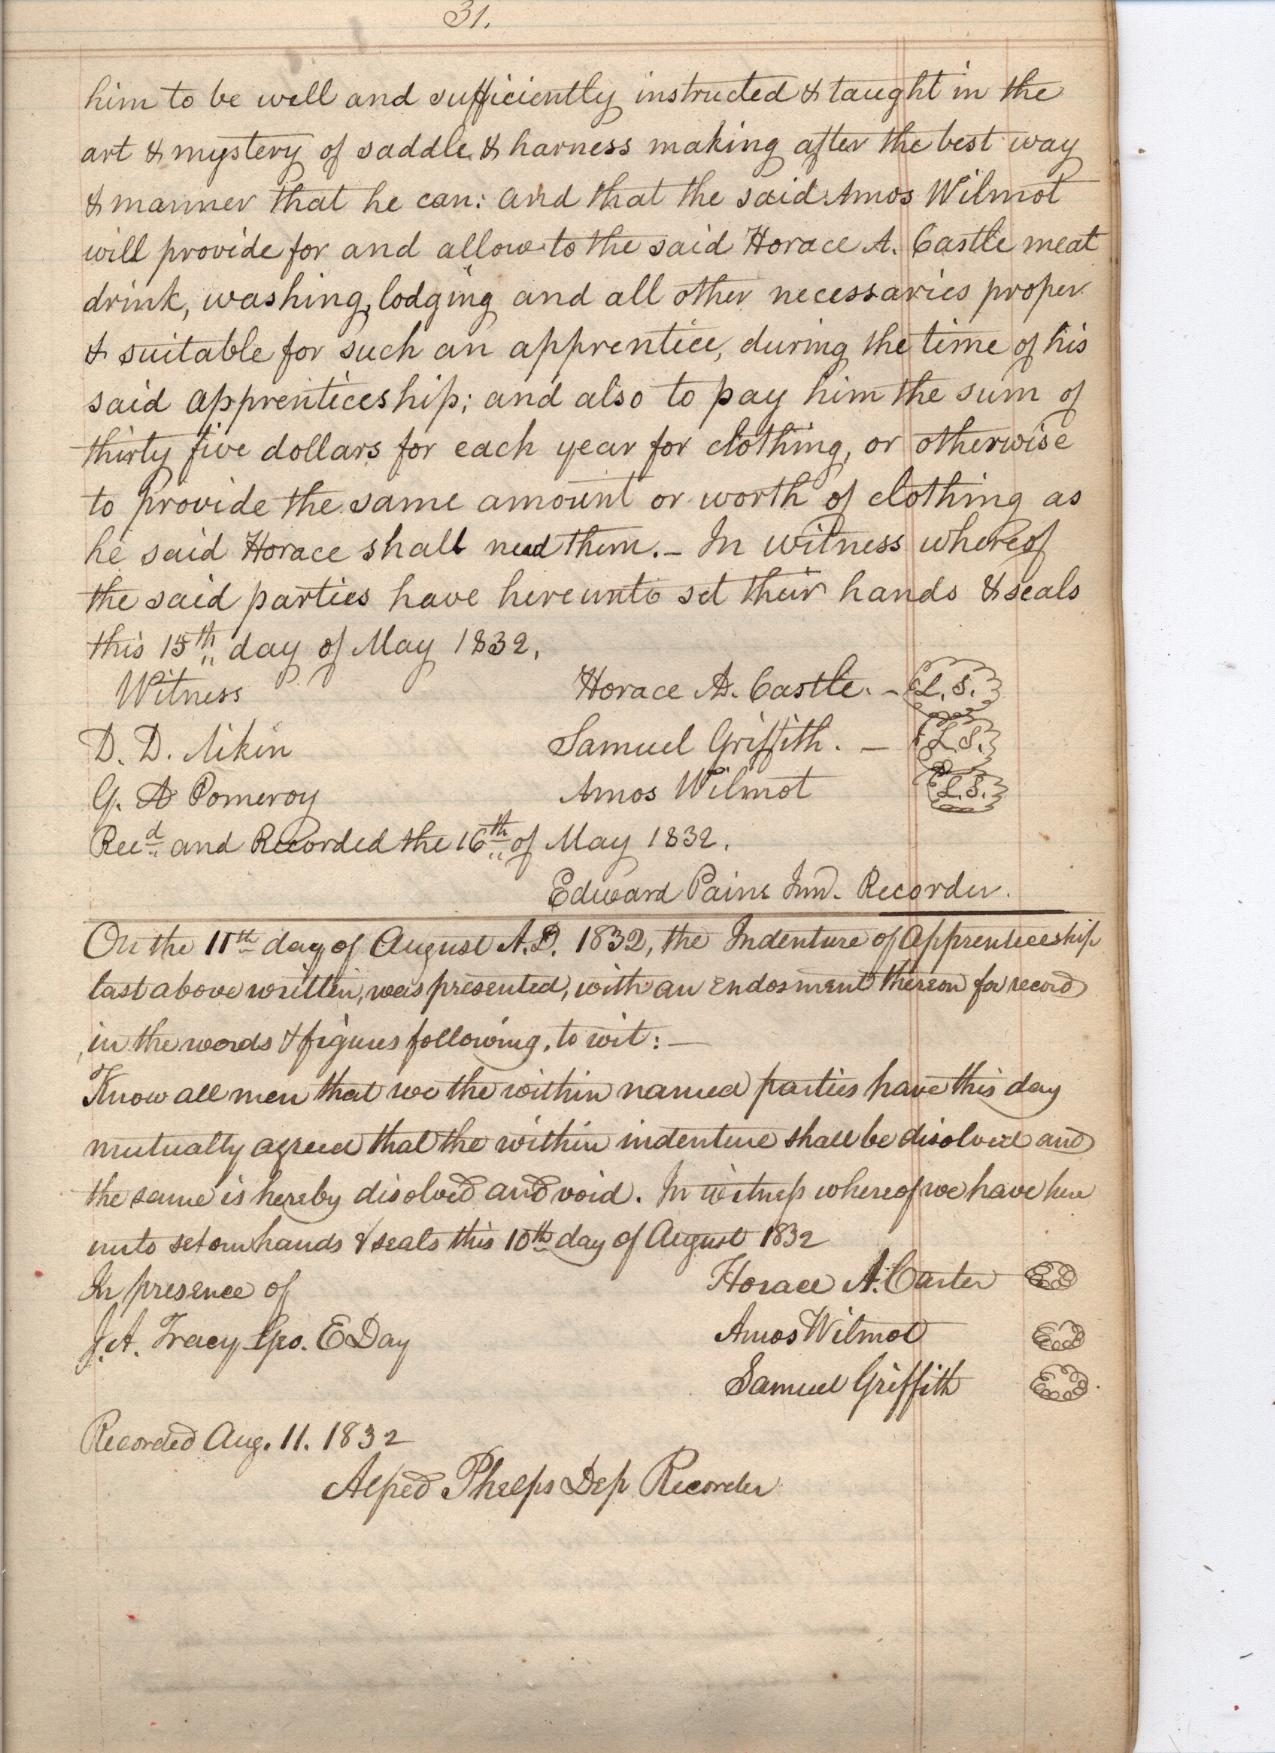 31.
him to be well and sufficiently instructed & taught in the
art & mystery of saddle & harness making after the best way
& manner that he can: and that the said Amos Wilmot
will provide for and allow to the said Horace A. Castle meat
drink, washing, lodging and all other necessaries proper
& suitable for such an apprentice, during the time of his
said apprenticeship; and also to pay him the sum of
thirty five dollars for each year for clothing, or otherwise
to provide the same amount or worth of clothing as
he said Horace shall need them. _ In witness whereof
the said parties have hereunto set their hands & seals
this 15th day of May 1832.
Witness Horace A. Castle. _ L.S.
D. D. Aikin Samuel Griffith. _ L.S.
G. A Pomeroy Amos Wilmot L.S.
Recd and Recorded the 16th of May 1832.
Edward Paine Jun. Recorder.
On the 11th day of August A.D. 1832, the Indenture of Apprenticeship
last above written, was presented, with an Endosment thereon for record
in the words & figures following, to wit: —
Know all men that we the within named parties have this day
mutually agreed that the within indenture shall be disolved and
the same is hereby disolved and void. In witness whereof we have here
unto set our hands & seals this 10th day of August 1832
In presence of Horace A. Carter
J. A. Tracy Geo. E Day Amos Wilmot
Samuel Griffith
Recorded Aug. 11. 1832
Alfred Phelps Dep Recorder